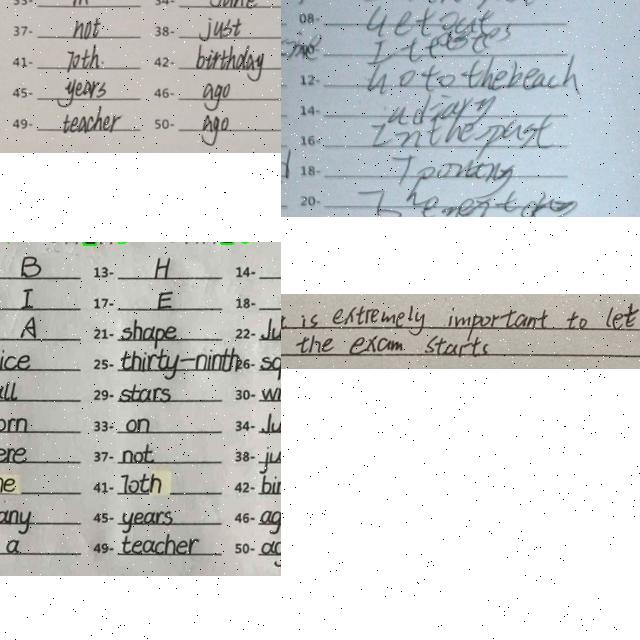 37- not 38- just
41- 10th 42- birthday
45- years 46- ago
49- teacher 50- ago
08- get out
12- go to the beach
14-
16- in the past
18-
20-
B 13- H 14-
I 17- E 18-
A 21- shape 22- Ju
ice 25- thirty-ninth 26- sq
all 29- stars 30- wi
orn 33- on 34- Ju
ere 37- not 38- ju
me 41- 10th 42- bir
any 45- years 46- ag
a 49- teacher 50- ag
is extremely important to let
the exam starts